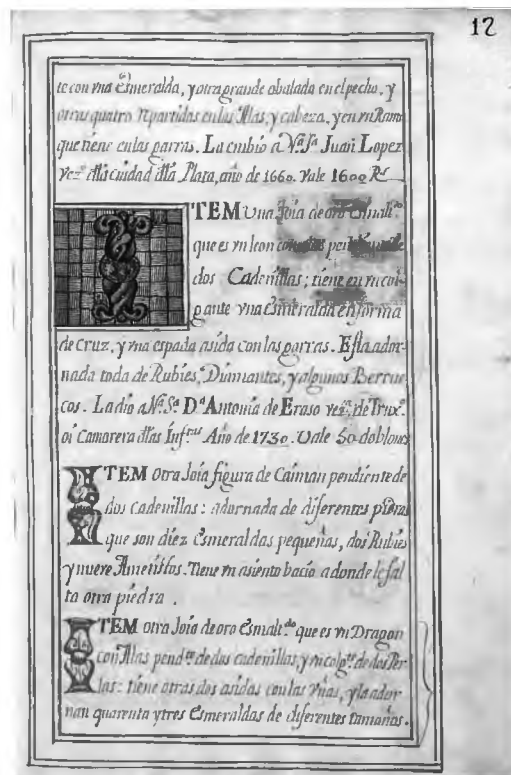 12
te con vna Esmeralda, y otra grande obalada en el pecho, y
otras quatro repartidas en las Alas, y cabeza, y en vn Ramo
que tiene en las garras. La embio a Nª Sª Juan Lopez
vezº dla ciudad dla Plata, año de 1660. vale 1600 Rs
ITEM Una Joia de oro Esmaltº
que es vn leon con pendiente
dos Cadenillas; tiene en vn col-
gante vna Esmeralda en forma
de Cruz, y vna espada asida con las garras. Esta ador-
nada toda de Rubies, Diamantes, y algunos Berrue-
cos. La dio a Nª Sª Dª Antonia de Eraso vezª de Truxº
oi Camarera dlas Infᵗᵃˢ Año de 1730. Vale 50 doblones
ITEM Otra Joia figura de Caiman pendiente de
dos cadenillas: adornada de diferentes piedras
que son diez Esmeraldas pequeñas, dos Rubies
y nueve Ametistas. Tiene vn asiento bacio a donde le fal
ta otra piedra.
ITEM otra Joia de oro Esmaltᵈᵒ que es vn Dragon
con Alas pendᵗᵉ de dos cadenillas, y vn colgᵗᵉ de dos Per
las: tiene otras dos asidas con las vñas, y la ador
nan quarenta y tres Esmeraldas de diferentes tamaños.